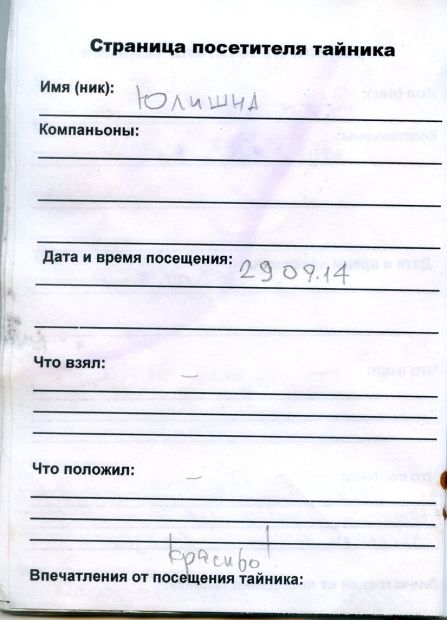 Страница посетителя тайника
Имя (ник): Юлишна
Компаньоны:
Дата и время посещения: 29.09.14
Что взял: —
Что положил: —
красиво!
Впечатления от посещения тайника: